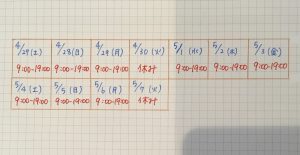 4/29(土) 4/28(日) 4/29(月) 4/30(火) 5/1(水) 5/2(木) 5/3(金)
9:00-19:00 9:00-19:00 9:00-19:00 休み 9:00-19:00 9:00-19:00 9:00-19:00
5/4(土) 5/5(日) 5/6(月) 5/7(火)
9:00-19:00 9:00-19:00 9:00-19:00 休み